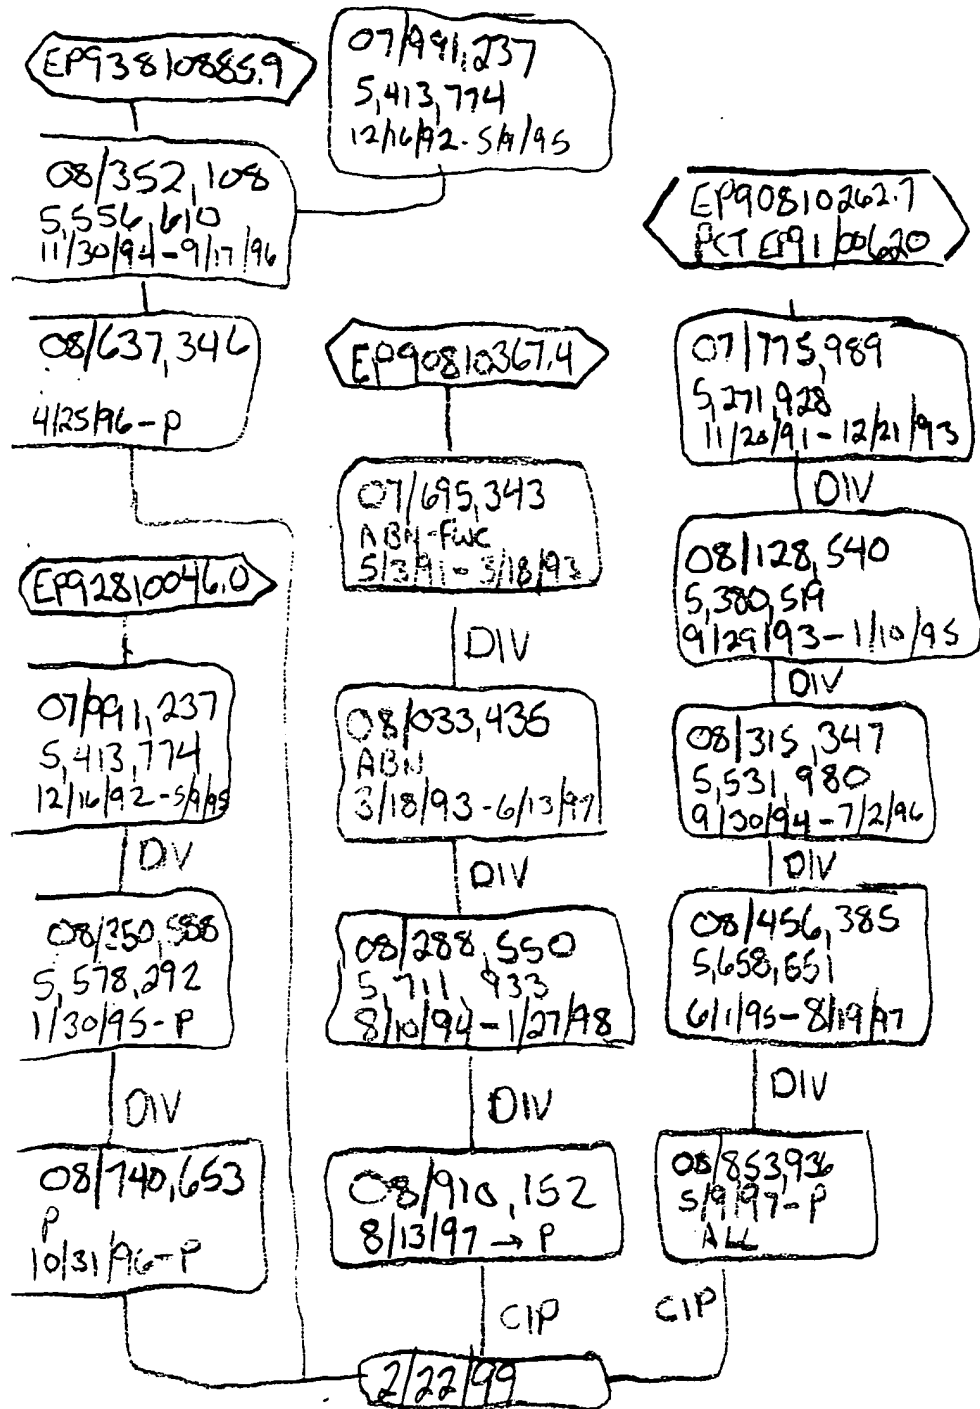 EP93810885.9
07/991,237
5,413,774
12/16/92 - 5/9/95
08/352,108
5,556,610
11/30/94 - 9/17/96
08/637,346
4/25/96 - P
EP92810046.0
07/991,237
5,413,774
12/16/92 - 5/9/95
DIV
08/350,588
5,578,292
1/30/95 - P
DIV
08/740,653
P
10/31/96 - P
EP90810367.4
07/695,343
ABN-FWC
5/3/91 - 3/18/93
DIV
08/033,435
ABN
3/18/93 - 6/13/97
DIV
08/288,550
5,711,933
8/10/94 - 1/27/98
DIV
08/910,152
8/13/97 → P
CIP
EP90810262.7
PCT EP91/00620
07/775,989
5,271,928
11/20/91 - 12/21/93
DIV
08/128,540
5,380,519
9/29/93 - 1/10/95
DIV
08/315,347
5,531,980
9/30/94 - 7/2/96
DIV
08/456,385
5,658,551
6/1/95 - 8/19/97
DIV
08/853,936
5/9/97 - P
ALL
CIP
2/22/99